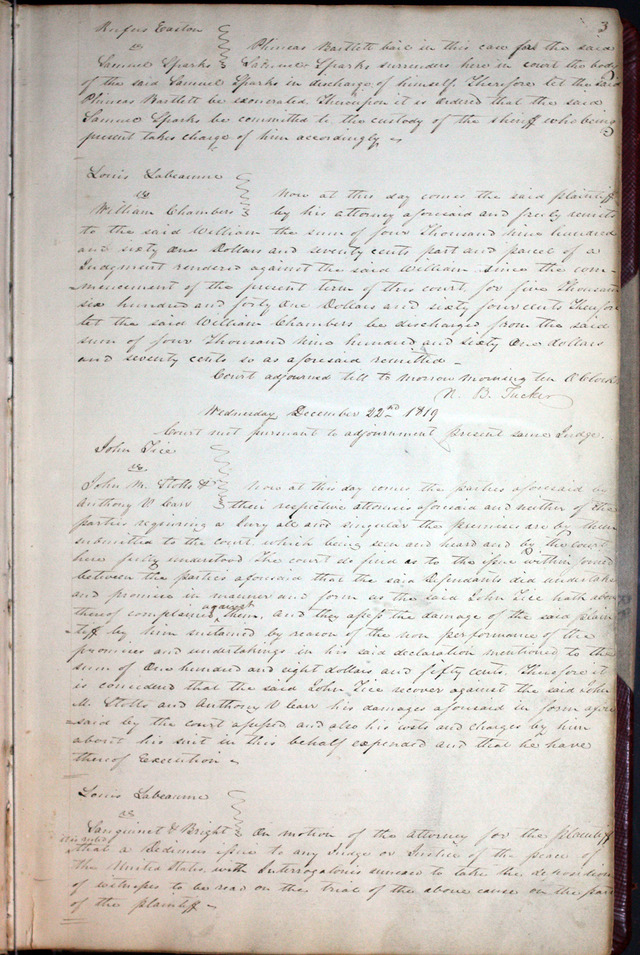 3
Rufus Easton
vs Phineas Bartlett bail in this case for the said
Samuel Sparks Samuel Sparks surrenders here in court the body
of the said Samuel Sparks in discharge of himself. Therefore let the said
Phineas Bartlett be exonerated. Thereupon it is ordered that the said
Samuel Sparks be committed to the custody of the sheriff who being
present takes charge of him accordingly
Louis Labeaume
vs Now at this day comes the said plaintiff
William Chambers by his attorney aforesaid and freely remits
to the said William the sum of four Thousand nine hundred
and sixty One Dollars and seventy cents part and parcel of a
Judgment rendered against the said William since the com-
mencement of the present term of this court, for five Thousand
six hundred and forty One Dollars and sixty four cents Therefore
let the said William Chambers be discharged from the said
sum of four Thousand nine hundred and sixty One dollars
and seventy cents so as aforesaid remitted -
Court adjourned till to morrow morning ten O'Clock
N. B. Tucker
Wednesday December 22nd 1819
Court met pursuant to adjournment present same Judge.
John Tice
vs
John M. Stotts & Now at this day comes the parties aforesaid by
Anthony V. Carr their respective attornies aforesaid and neither of the
parties requiring a Jury all and singular the premises are by them
submitted to the court which being seen and heard and by the court
here fully understood The court do find as to the issue within joined
between the parties aforesaid that the said Defendants did undertake
and promise in manner and form as the said John Tice hath above
thereof complained against them, and they assess the damage of the said plain
tiff by him sustained by reason of the non performance of the
promises and undertakings in his said declaration mentioned to the
sum of One hundred and eight dollars and fifty cents. Therefore it
is considered that the said John Tice recover against the said John
M. Stotts and Anthony V Carr his damages aforesaid in form afore
said by the court assessed and also his costs and charges by him
about his suit in this behalf expended and that he have
thereof Execution
Louis Labeaume
vs
Sanguinet & Bright On motion of the attorney for the plaintiff
it is ordered that a Dedimus issue to any Judge or Justice of the peace of
the United States, with Interrogatories annexed to take the deposition
of witnesses to be read on the trial of the above cause on the part
of the plaintiff -